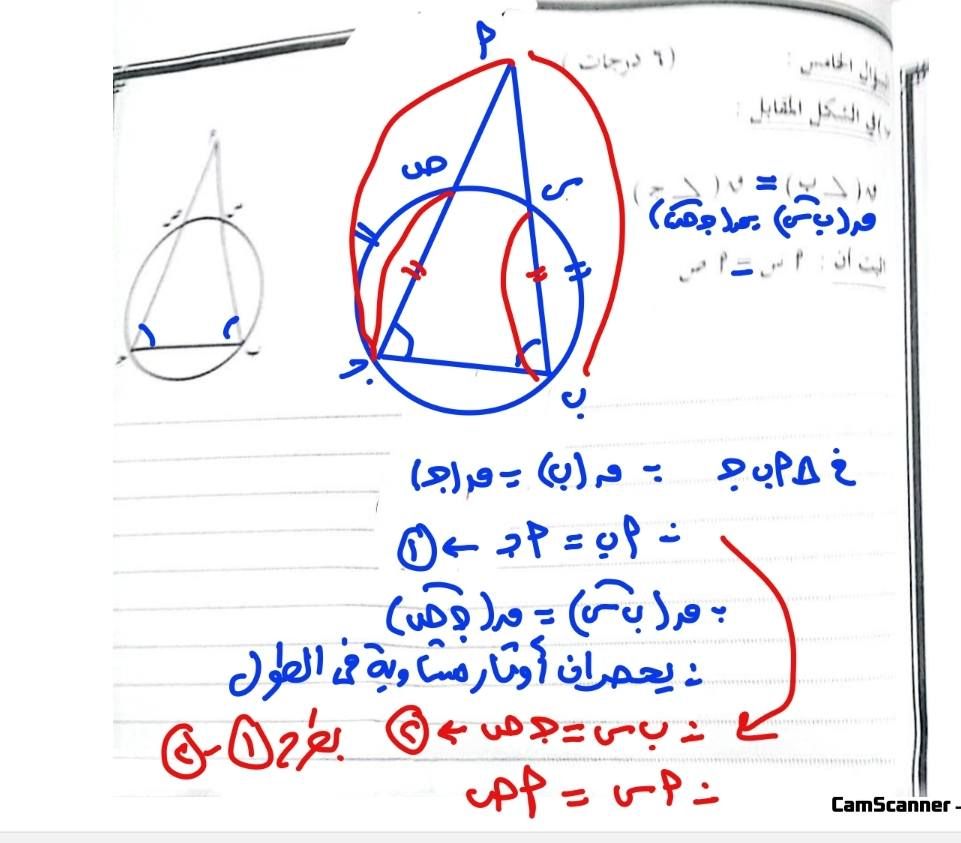 السؤال الخامس : ( ٦ درجات )
في الشكل المقابل :
ق(∠ ب) = ق(∠ ج)
ق(ب س) = ق(ج ص)
اثبت أن : م س = م ص
م
ص
س
ج
ب
في Δ م ب ج ∵ ق(ب) = ق(ج)
∴ م ب = م ج ← ①
∵ ق(ب س) = ق(ج ص)
∴ يحصران أوتار متساوية فى الطول
∴ ب س = ج ص ← ② بطرح ① - ②
∴ م س = م ص
CamScanner